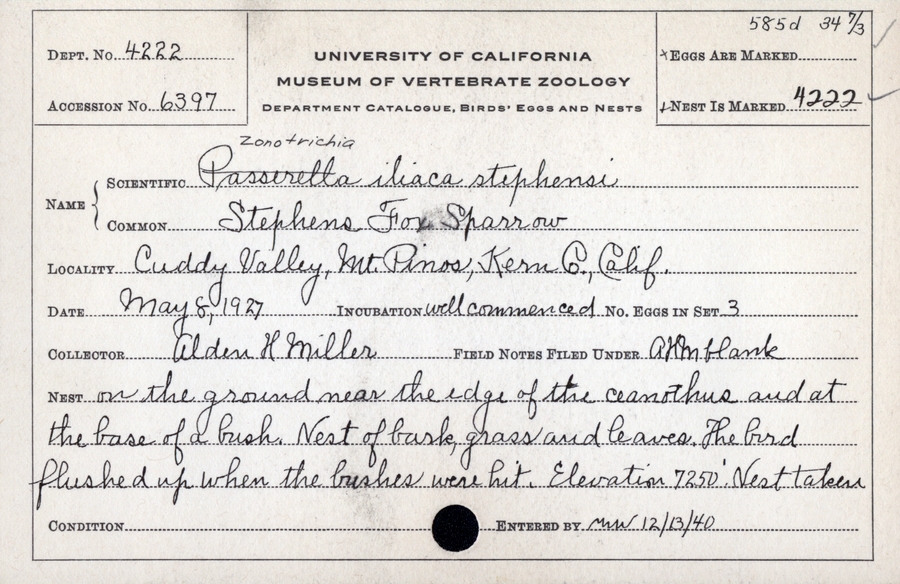 585d 34 7/3
DEPT. No. 4222
UNIVERSITY OF CALIFORNIA
× EGGS ARE MARKED
MUSEUM OF VERTEBRATE ZOOLOGY
ACCESSION No. 6397
DEPARTMENT CATALOGUE, BIRDS' EGGS AND NESTS
NEST IS MARKED 4222
Zonotrichia
NAME { SCIENTIFIC Passerella iliaca stephensi
COMMON Stephens Fox Sparrow
LOCALITY Cuddy Valley, Mt. Pinos, Kern Co., Calif.
DATE May 8, 1927 INCUBATION well commenced No. EGGS IN SET 3
COLLECTOR Alden H Miller FIELD NOTES FILED UNDER AHM blank
NEST on the ground near the edge of the ceanothus and at
the base of a bush. Nest of bark, grass and leaves. The bird
flushed up when the bushes were hit. Elevation 7250'. Nest taken
CONDITION ENTERED BY MW 12/13/40